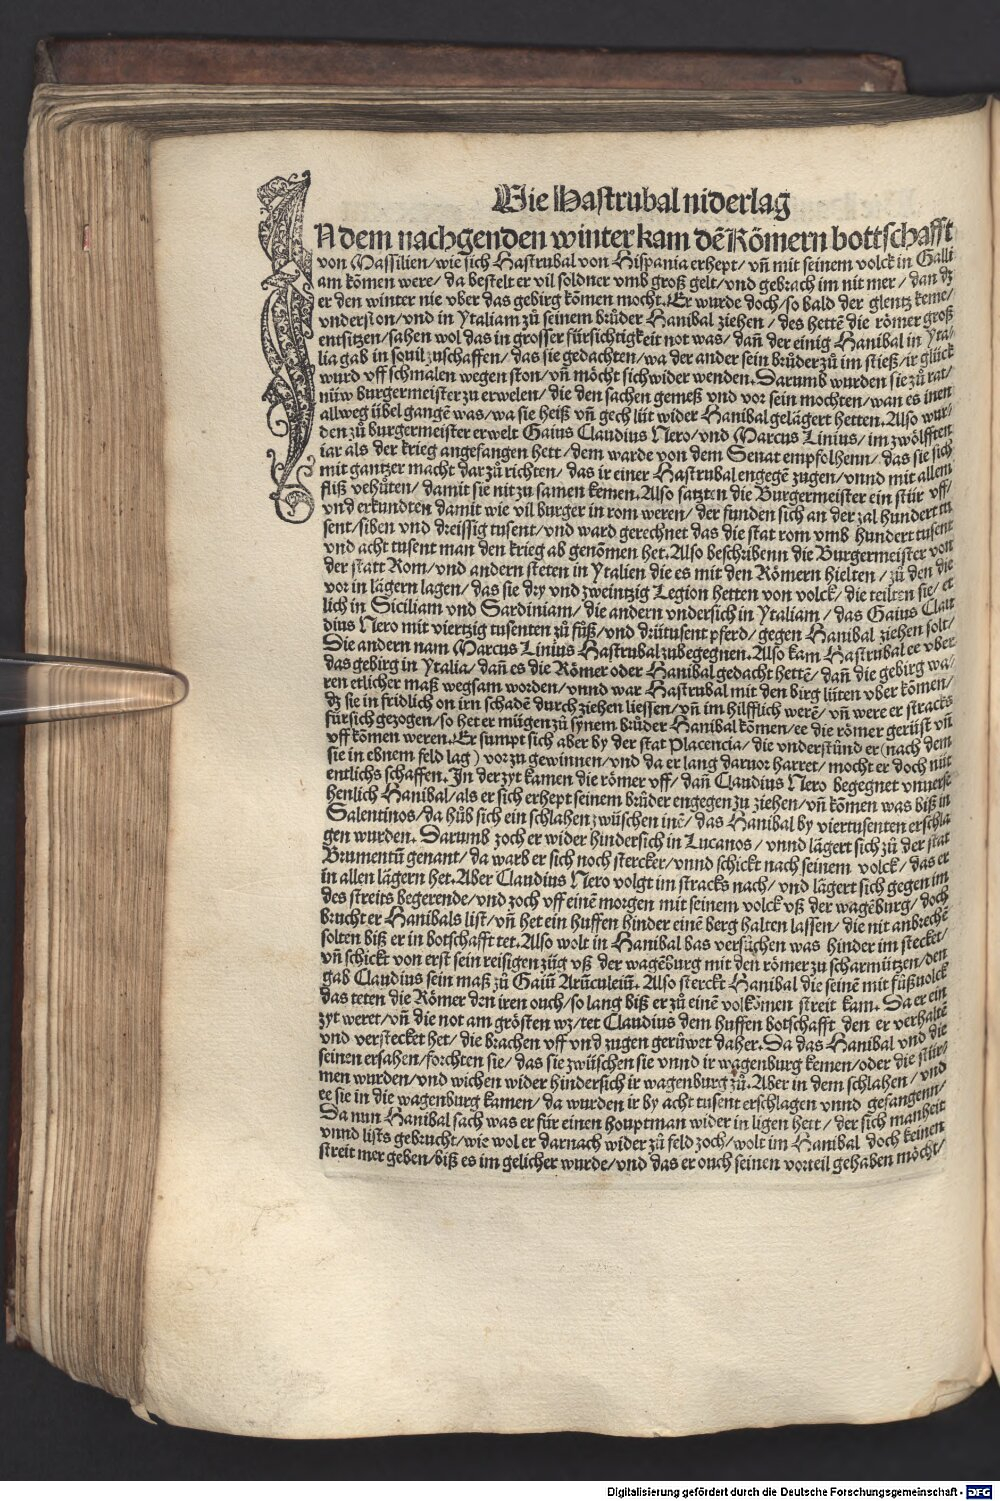 Die Hastrubal niderlag
IN dem nachgenden winter kam dē Römern bottschafft
von Massilien/wie sich Hastrubal von Hispania erhept/vñ mit seinem volck in Galli-
am kōmen were/da bestelt er vil soldner vmb groß gelt/vnd gebrach im nit mer/dan dz
er den winter nie vber das gebirg kōmen mocht. Er wurde doch/so bald der glentz keme/
vnderston/vnd in Ytaliam zů seinem brůder Hanibal ziehen/des hettē die römer groß
entsitzen/sahen wol das in grosser fürsichtigkeit not was/dañ der einig Hanibal in Yta-
lia gab in souil zuschaffen/das sie gedachten/wa der ander sein brůder zů im stieß/ir glück
wurd vff schmalen wegen ston/vñ möcht sich wider wenden. Darumb wurden sie zů rat/
nüw burgermeister zu erwelen/die den sachen gemeß vnd vor sein mochten/wan es inen
allweg übel gangē was/wa sie heiß vñ gech lüt wider Hanibal gelägert hetten. Also wur-
den zů burgermeister erwelt Gaius Claudius Nero/vnd Marcus Linius/im zwölfften
iar als der krieg angefangen hett/dem warde von dem Senat empfolhenn/das sie sich
mit gantzer macht dar zů richten/das ir einer Hastrubal engegē zugen/vnnd mit allem
fliß vehůten/damit sie nit zu samen kemen. Also satzten die Burgermeister ein stür vff/
vnd erkundten damit wie vil burger in rom weren/der funden sich an der zal hundert tu
sent/siben vnd dreissig tusent/vnd ward gerechnet das die stat rom vmb hundert tusent
vnd acht tusent man den krieg ab genōmen het. Also beschribenn die Burgermeister von
der statt Rom/vnd andern steten in Ytalien die es mit den Römern hielten/zů den die
vor in lägern lagen/das sie dry vnd zweintzig Legion hetten von volck/die teilten sie/et
lich in Siciliam vnd Sardiniam/die andern vndersich in Ytaliam/das Gaius Clau
dius Nero mit viertzig tusenten zů fůß/vnd drütusent pferd/gegen Hanibal ziehen solt/
Die andern nam Marcus Linius Hastrubal zubegegnen. Also kam Hastrubal ee vber
das gebirg in Ytalia/dañ es die Römer oder Hanibal gedacht hettē/dañ die gebirg wa-
ren etlicher maß wegsam worden/vnnd war Hastrubal mit den birg lüten vber kōmen/
dz sie in fridlich on irn schadē durch ziehen liessen/vñ im hilfflich werē/vñ were er stracks
fürsich gezogen/so het er mügen zů synem brůder Hanibal kōmen/ee die römer gerüst vñ
vff kōmen weren. Er sumpt sich aber by der stat Placencia/die vnderstůnd er (nach dem
sie in ebnem feld lag) vor zu gewinnen/vnd da er lang daruor harret/mocht er doch nüt
entlichs schaffen. In der zyt kamen die römer vff/dañ Claudius Nero begegnet vnuerse
henlich Hanibal/als er sich erhept seinem brůder engegen zu ziehen/vñ kōmen was biß in
Salentinos/da hůb sich ein schlahen zwüschen inē/das Hanibal by viertusenten erschla
gen wurden. Darumb zoch er wider hindersich in Lucanos/vnnd lägert sich zů der stat
Brumentū genant/da warb er sich noch stercker/vnnd schickt nach seinem volck/das er
in allen lägern het. Aber Claudius Nero volgt im stracks nach/vnd lägert sich gegen im
des streits begerende/vnd zoch vff einē morgen mit seinem volck vß der wagēburg/doch
brucht er Hanibals list/vñ het ein huffen hinder einē berg halten lassen/die nit anbrechē
solten biß er in botschafft tet. Also wolt in Hanibal bas versůchen was hinder im stecket/
vñ schickt von erst sein reisigen züg vß der wagēburg mit den römer zu scharmützen/den
gab Claudius sein maß zů Gaiū Arūculeiū. Also sterckt Hanibal die seinē mit fůßuolck
das teten die Römer den iren ouch/so lang biß er zů einē volkōmen streit kam. Da er ein
zyt weret/vñ die not am grösten wz/tet Claudius dem huffen botschafft den er verhaltē
vnd verstecket het/die brachen vff vnd zugen gerüwet daher. Da das Hanibal vnd die
seinen ersahen/forchten sie/das sie zwüschen sie vnnd ir wagenburg kemen/oder die stür-
men wurden/vnd wichen wider hindersich ir wagenburg zů. Aber in dem schlahen/vnd
ee sie in die wagenburg kamen/da wurden ir by acht tusent erschlagen vnnd gefangenn/
Da nun Hanibal sach was er für einen houptman wider in ligen hett/der sich manheit
vnnd lists gebrucht/wie wol er darnach wider zů feld zoch/wolt im Hanibal doch keinen
streit mer geben/biß es im gelicher wurde/vnd das er ouch seinen vorteil gehaben möcht/
Digitalisierung gefördert durch die Deutsche Forschungsgemeinschaft - DFG